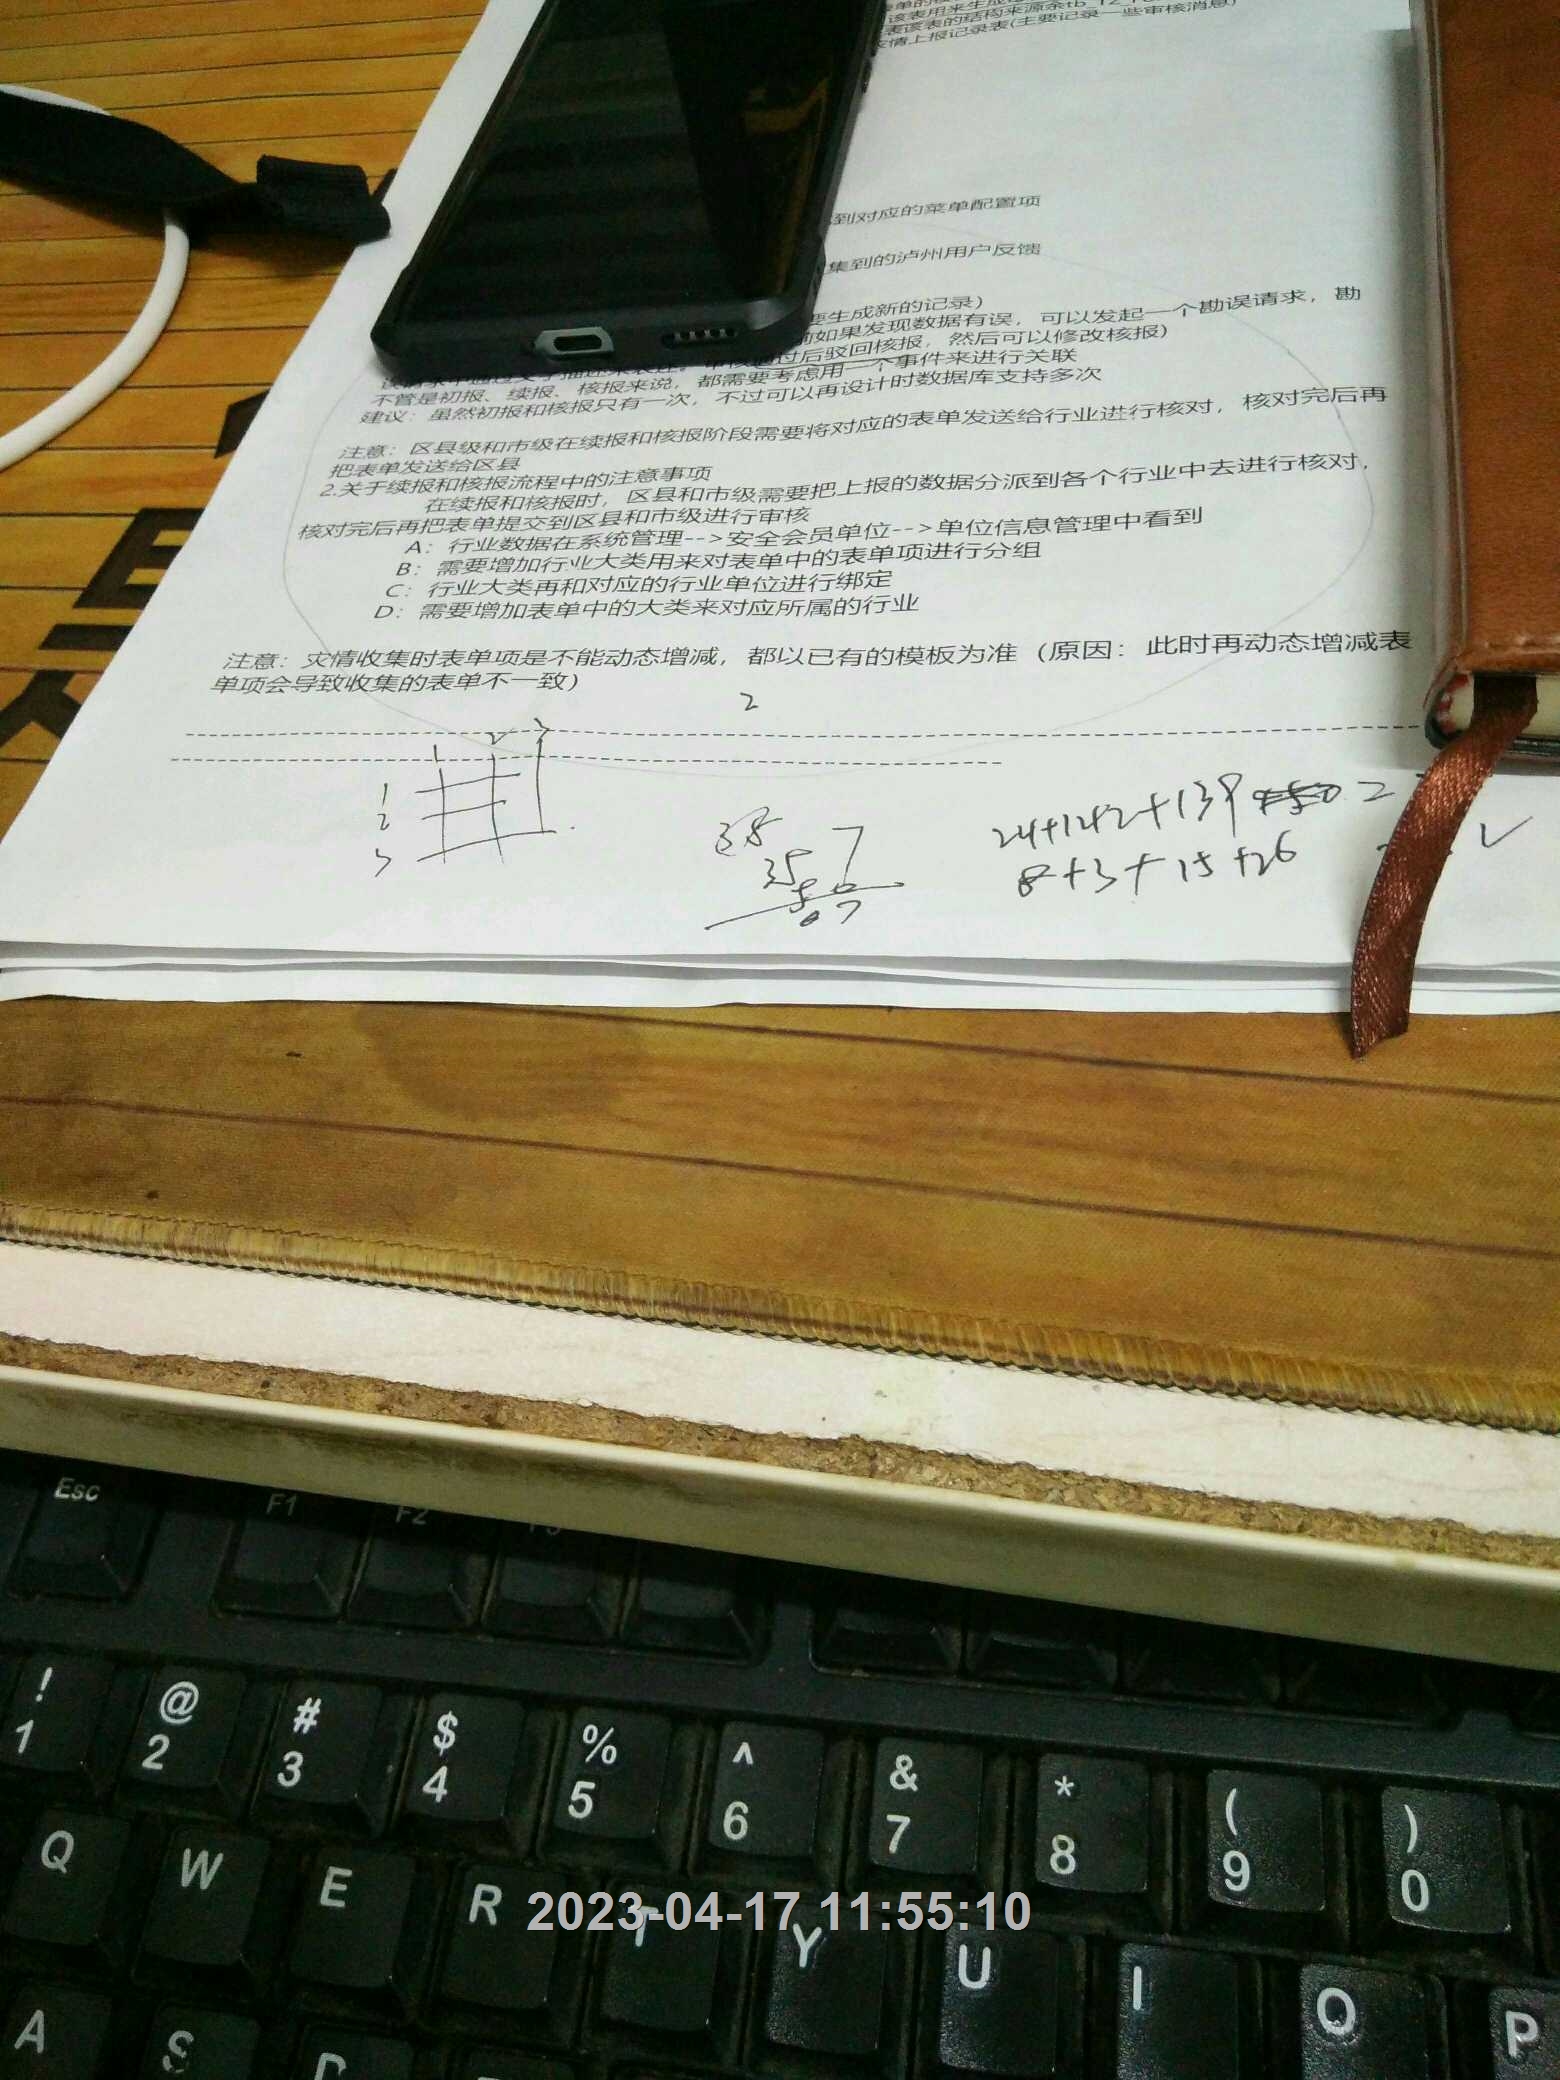 该表用来生成
表该表的结构来源余tb_
灾情上报记录表(主要记录一些审核消息)
到对应的菜单配置项
集到的泸州用户反馈
要生成新的记录)
前如果发现数据有误，可以发起一个勘误请求，勘
过后驳回核报，然后可以修改核报)
不管是初报、续报、核报来说，都需要考虑用一个事件来进行关联
建议：虽然初报和核报只有一次，不过可以再设计时数据库支持多次
注意：区县级和市级在续报和核报阶段需要将对应的表单发送给行业进行核对，核对完后再
把表单发送给区县
2.关于续报和核报流程中的注意事项
在续报和核报时，区县和市级需要把上报的数据分派到各个行业中去进行核对，
核对完后再把表单提交到区县和市级进行审核
A：行业数据在系统管理-->安全会员单位-->单位信息管理中看到
B：需要增加行业大类用来对表单中的表单项进行分组
C：行业大类再和对应的行业单位进行绑定
D：需要增加表单中的大类来对应所属的行业
注意：灾情收集时表单项是不能动态增减，都以已有的模板为准（原因：此时再动态增减表
单项会导致收集的表单不一致）
2
1 2 3
1
2
3
24+142+139
8+3+15+26
Esc F1 F2 F3
! @ # $ % ^ & * ( )
1 2 3 4 5 6 7 8 9 0
Q W E R T Y U I O P
2023-04-17 11:55:10
A S D